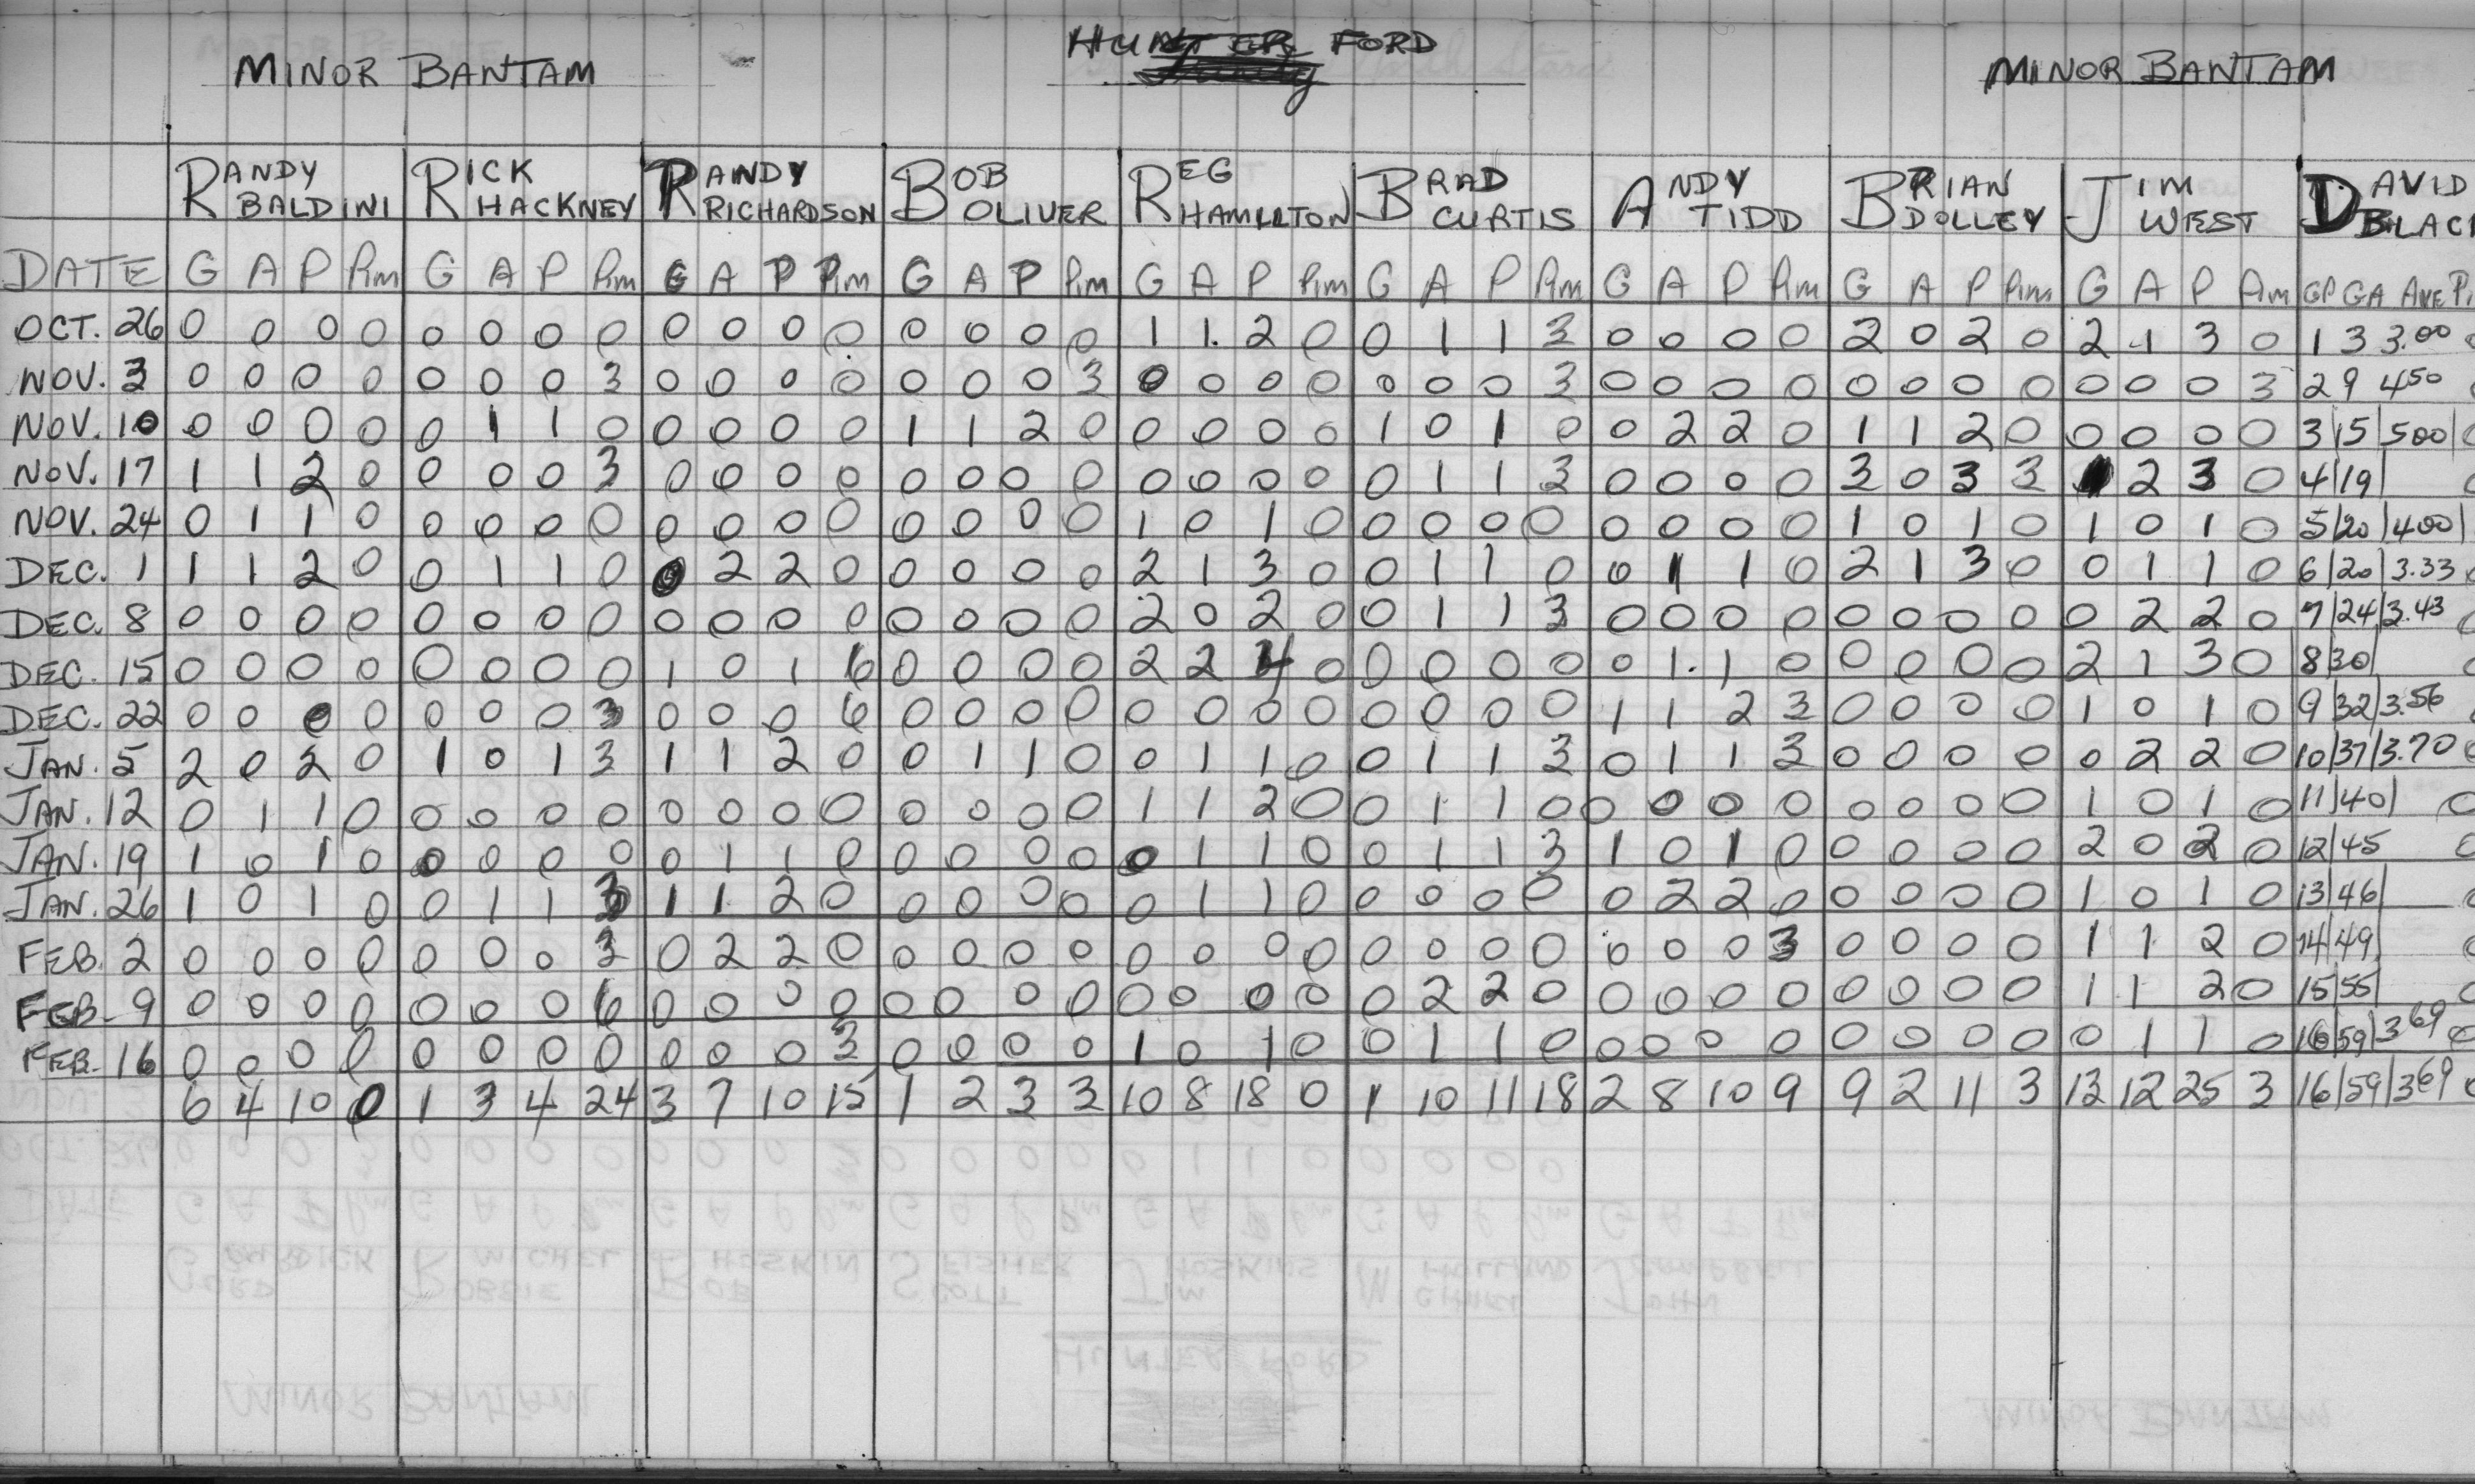 MINOR BANTAM HUNTER FORD MINOR BANTAM
RANDY RICK RANDY BOB REG BRAD ANDY BRIAN JIM DAVID
BALDINI HACKNEY RICHARDSON OLIVER HAMILTON CURTIS TIDD DOLLEY WEST BLAC
DATE G A P Pim G A P Pim G A P Pim G A P Pim G A P Pim G A P Pim G A P Pim G A P Pim G A P Pim GP GA AVE Pi
OCT. 26 0 0 0 0 0 0 0 0 0 0 0 0 0 0 0 0 1 1. 2 0 0 1 1 3 0 0 0 0 2 0 2 0 2 1 3 0 1 3 3.00
NOV. 3 0 0 0 0 0 0 0 3 0 0 0 0 0 0 0 3 0 0 0 0 0 0 0 3 0 0 0 0 0 0 0 0 0 0 0 3 2 9 450
NOV. 10 0 0 0 0 0 1 1 0 0 0 0 0 1 1 2 0 0 0 0 0 1 0 1 0 0 2 2 0 1 1 2 0 0 0 0 0 3|15|500|
NOV. 17 1 1 2 0 0 0 0 3 0 0 0 0 0 0 0 0 0 0 0 0 0 1 1 3 0 0 0 0 3 0 3 3 1 2 3 0 4|19|
NOV. 24 0 1 1 0 0 0 0 0 0 0 0 0 0 0 0 0 1 0 1 0 0 0 0 0 0 0 0 0 1 0 1 0 1 0 1 0 5|20|400|
DEC. 1 1 1 2 0 0 1 1 0 0 2 2 0 0 0 0 0 2 1 3 0 0 1 1 0 0 1 1 0 2 1 3 0 0 1 1 0 6|20|3.33
DEC. 8 0 0 0 0 0 0 0 0 0 0 0 0 0 0 0 0 2 0 2 0 0 1 1 3 0 0 0 0 0 0 0 0 0 2 2 0 7|24|3.43
DEC. 15 0 0 0 0 0 0 0 0 1 0 1 6 0 0 0 0 2 2 4 0 0 0 0 0 0 1. 1 0 0 0 0 0 2 1 3 0 8|30|
DEC. 22 0 0 0 0 0 0 0 3 0 0 0 6 0 0 0 0 0 0 0 0 0 0 0 0 1 1 2 3 0 0 0 0 1 0 1 0 9|32|3.56
JAN. 5 2 0 2 0 1 0 1 3 1 1 2 0 0 1 1 0 0 1 1 0 0 1 1 3 0 1 1 3 0 0 0 0 0 2 2 0 10|37|3.70
JAN. 12 0 1 1 0 0 0 0 0 0 0 0 0 0 0 0 0 1 1 2 0 0 1 1 0 0 0 0 0 0 0 0 0 1 0 1 0 11|40|
JAN. 19 1 0 1 0 0 0 0 0 0 1 1 0 0 0 0 0 0 1 1 0 0 1 1 3 1 0 1 0 0 0 0 0 2 0 2 0 12|45
JAN. 26 1 0 1 0 0 1 1 3 1 1 2 0 0 0 0 0 0 1 1 0 0 0 0 0 0 2 2 0 0 0 0 0 1 0 1 0 13|46|
FEB. 2 0 0 0 0 0 0 0 3 0 2 2 0 0 0 0 0 0 0 0 0 0 0 0 0 0 0 0 3 0 0 0 0 1 1 2 0 14|49|
FEB. 9 0 0 0 0 0 0 0 6 0 0 0 0 0 0 0 0 0 0 0 0 0 2 2 0 0 0 0 0 0 0 0 0 1 1 2 0 15|55|
FEB. 16 0 0 0 0 0 0 0 0 0 0 0 3 0 0 0 0 1 0 1 0 0 1 1 0 0 0 0 0 0 0 0 0 0 1 1 0 16|59|369
6 4 10 0 1 3 4 24 3 7 10 15 1 2 3 3 10 8 18 0 1 10 11 18 2 8 10 9 9 2 11 3 13 12 25 3 16|59|369